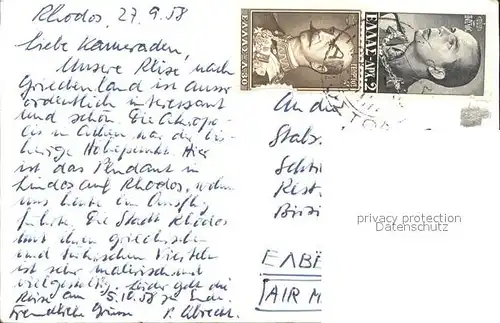 Rhodos, 27.9.58
Liebe Kameraden,
Unsere Reise nach
Griechenland ist ausser
ordentlich interessant
und schön. Die Akropo-
lis in Athen war der bis-
herige Höhepunkt. Hier
ist das Pendant in
Lindos auf Rhodos, wohin
uns heute ein Ausflug
führte. Die Stadt Rhodos
mit ihren griechischen
und türkischen Vierteln
ist sehr malerisch und
vielgestaltig. Leider geht die
Reise am 5.10.58 zu Ende.
Freundliche Grüsse P. Albrecht
ΕΛΛΑΣ
ΕΛΛΑΣ ΔΡΧ 2
An die
Stabs
Rest.
privacy protection
Datenschutz
ΕΛΒΕ
AIR M